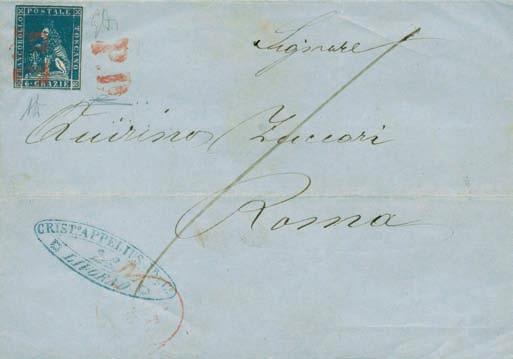 FRANCOBOLLO POSTALE TOSCANO
6 GRAZIE
P D
Signore
Quirino Zuccari
Roma
CRIST° APPELIUS
LIVORNO